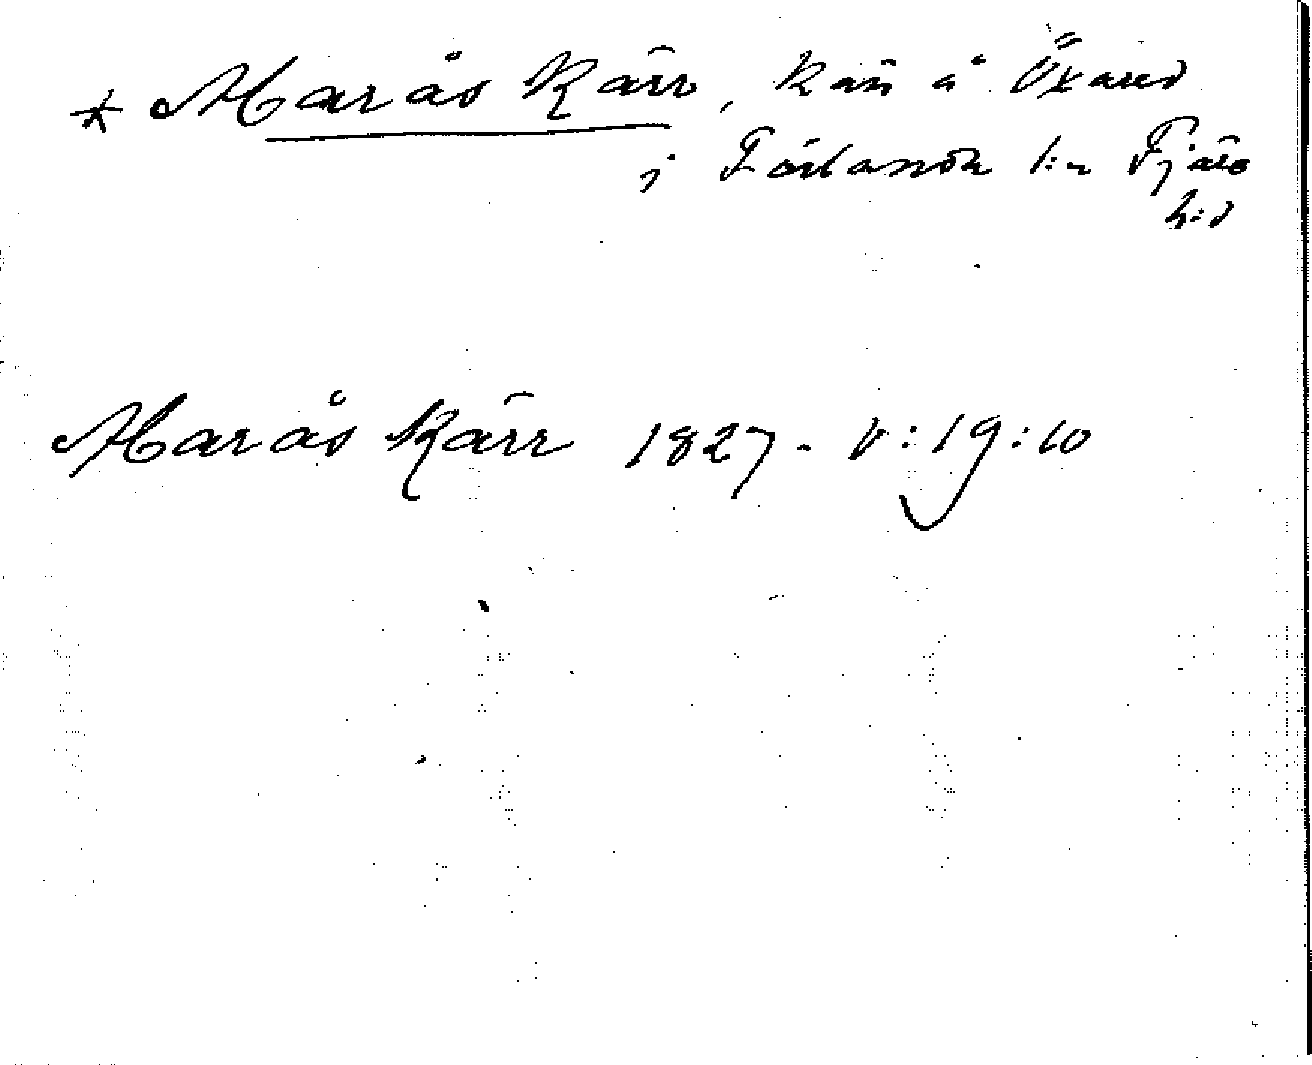 * Marås Kärr, kärr å Öxared
i Förlanda s:n Fjäre
h:d
Marås Kärr 1827 - V:19:10